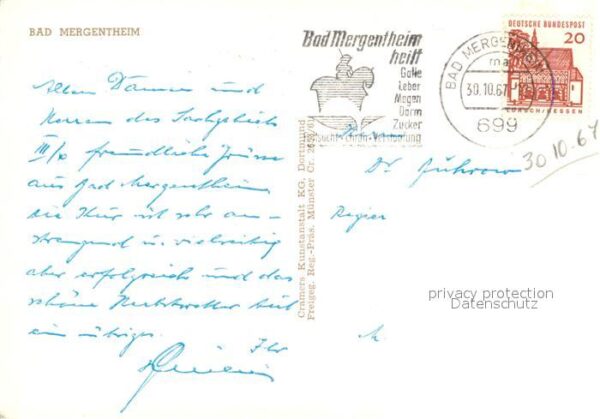 BAD MERGENTHEIM
Allen Damen und
Herren des Sachgebiets
III/x freundliche Grüsse
aus Bad Mergentheim
die Kur ist sehr an-
strengend u. vielseitig
aber erfolgreich und das
schöne Herbstwetter hilft
ein übriges.
Ihr
Cramers Kunstanstalt KG. Dortmund
Freigeg. Reg.-Präs. Münster Cr.
Bad Mergentheim
heilt
Galle
Leber
Magen
Darm
Zucker
sucht-chron·Verstopfung
BAD MERGENTHEIM
ma
30.10.67
699
DEUTSCHE BUNDESPOST
20
LORSCH/HESSEN
30 10-67
Dr.
Regier
privacy protection
Datenschutz